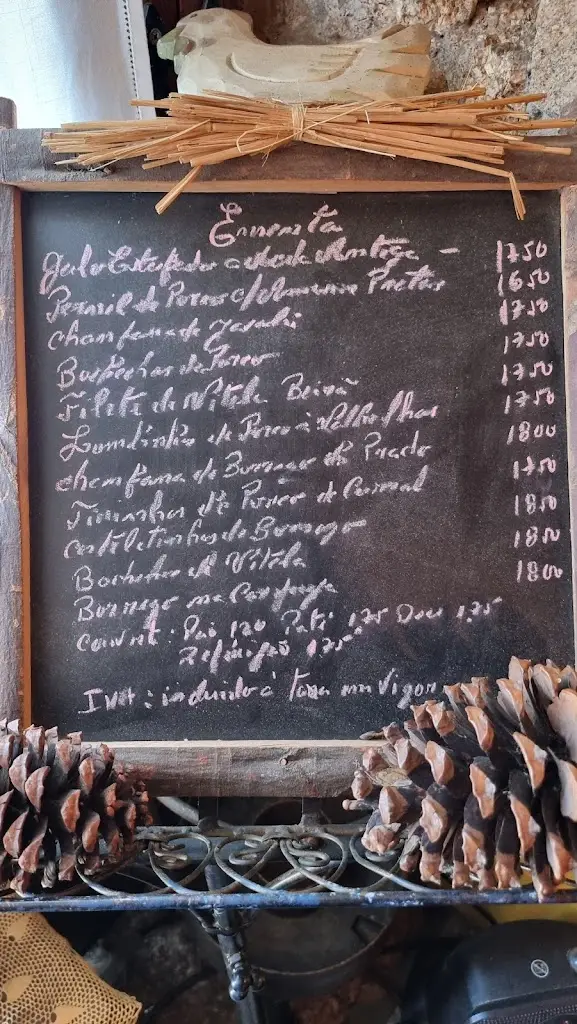 Ementa
Galo Estufado à moda Antiga - 1750
Pernil de Porco c/ Ameixas Pretas 1650
Chanfana de Javali 1750
Bochechas de Porco 1750
Filete de Vitela Beirã 1750
Lombinho de Porco à 1750
Chanfana de Borrego do Prado 1800
de Porco de 1750
Costeletinhas de Borrego 1850
de Vitela 1850
Borrego na 1800
Couvert: Pão 120 Paté 1.75 1.75
Refeição 175
IVA: incluido à taxa em Vigor